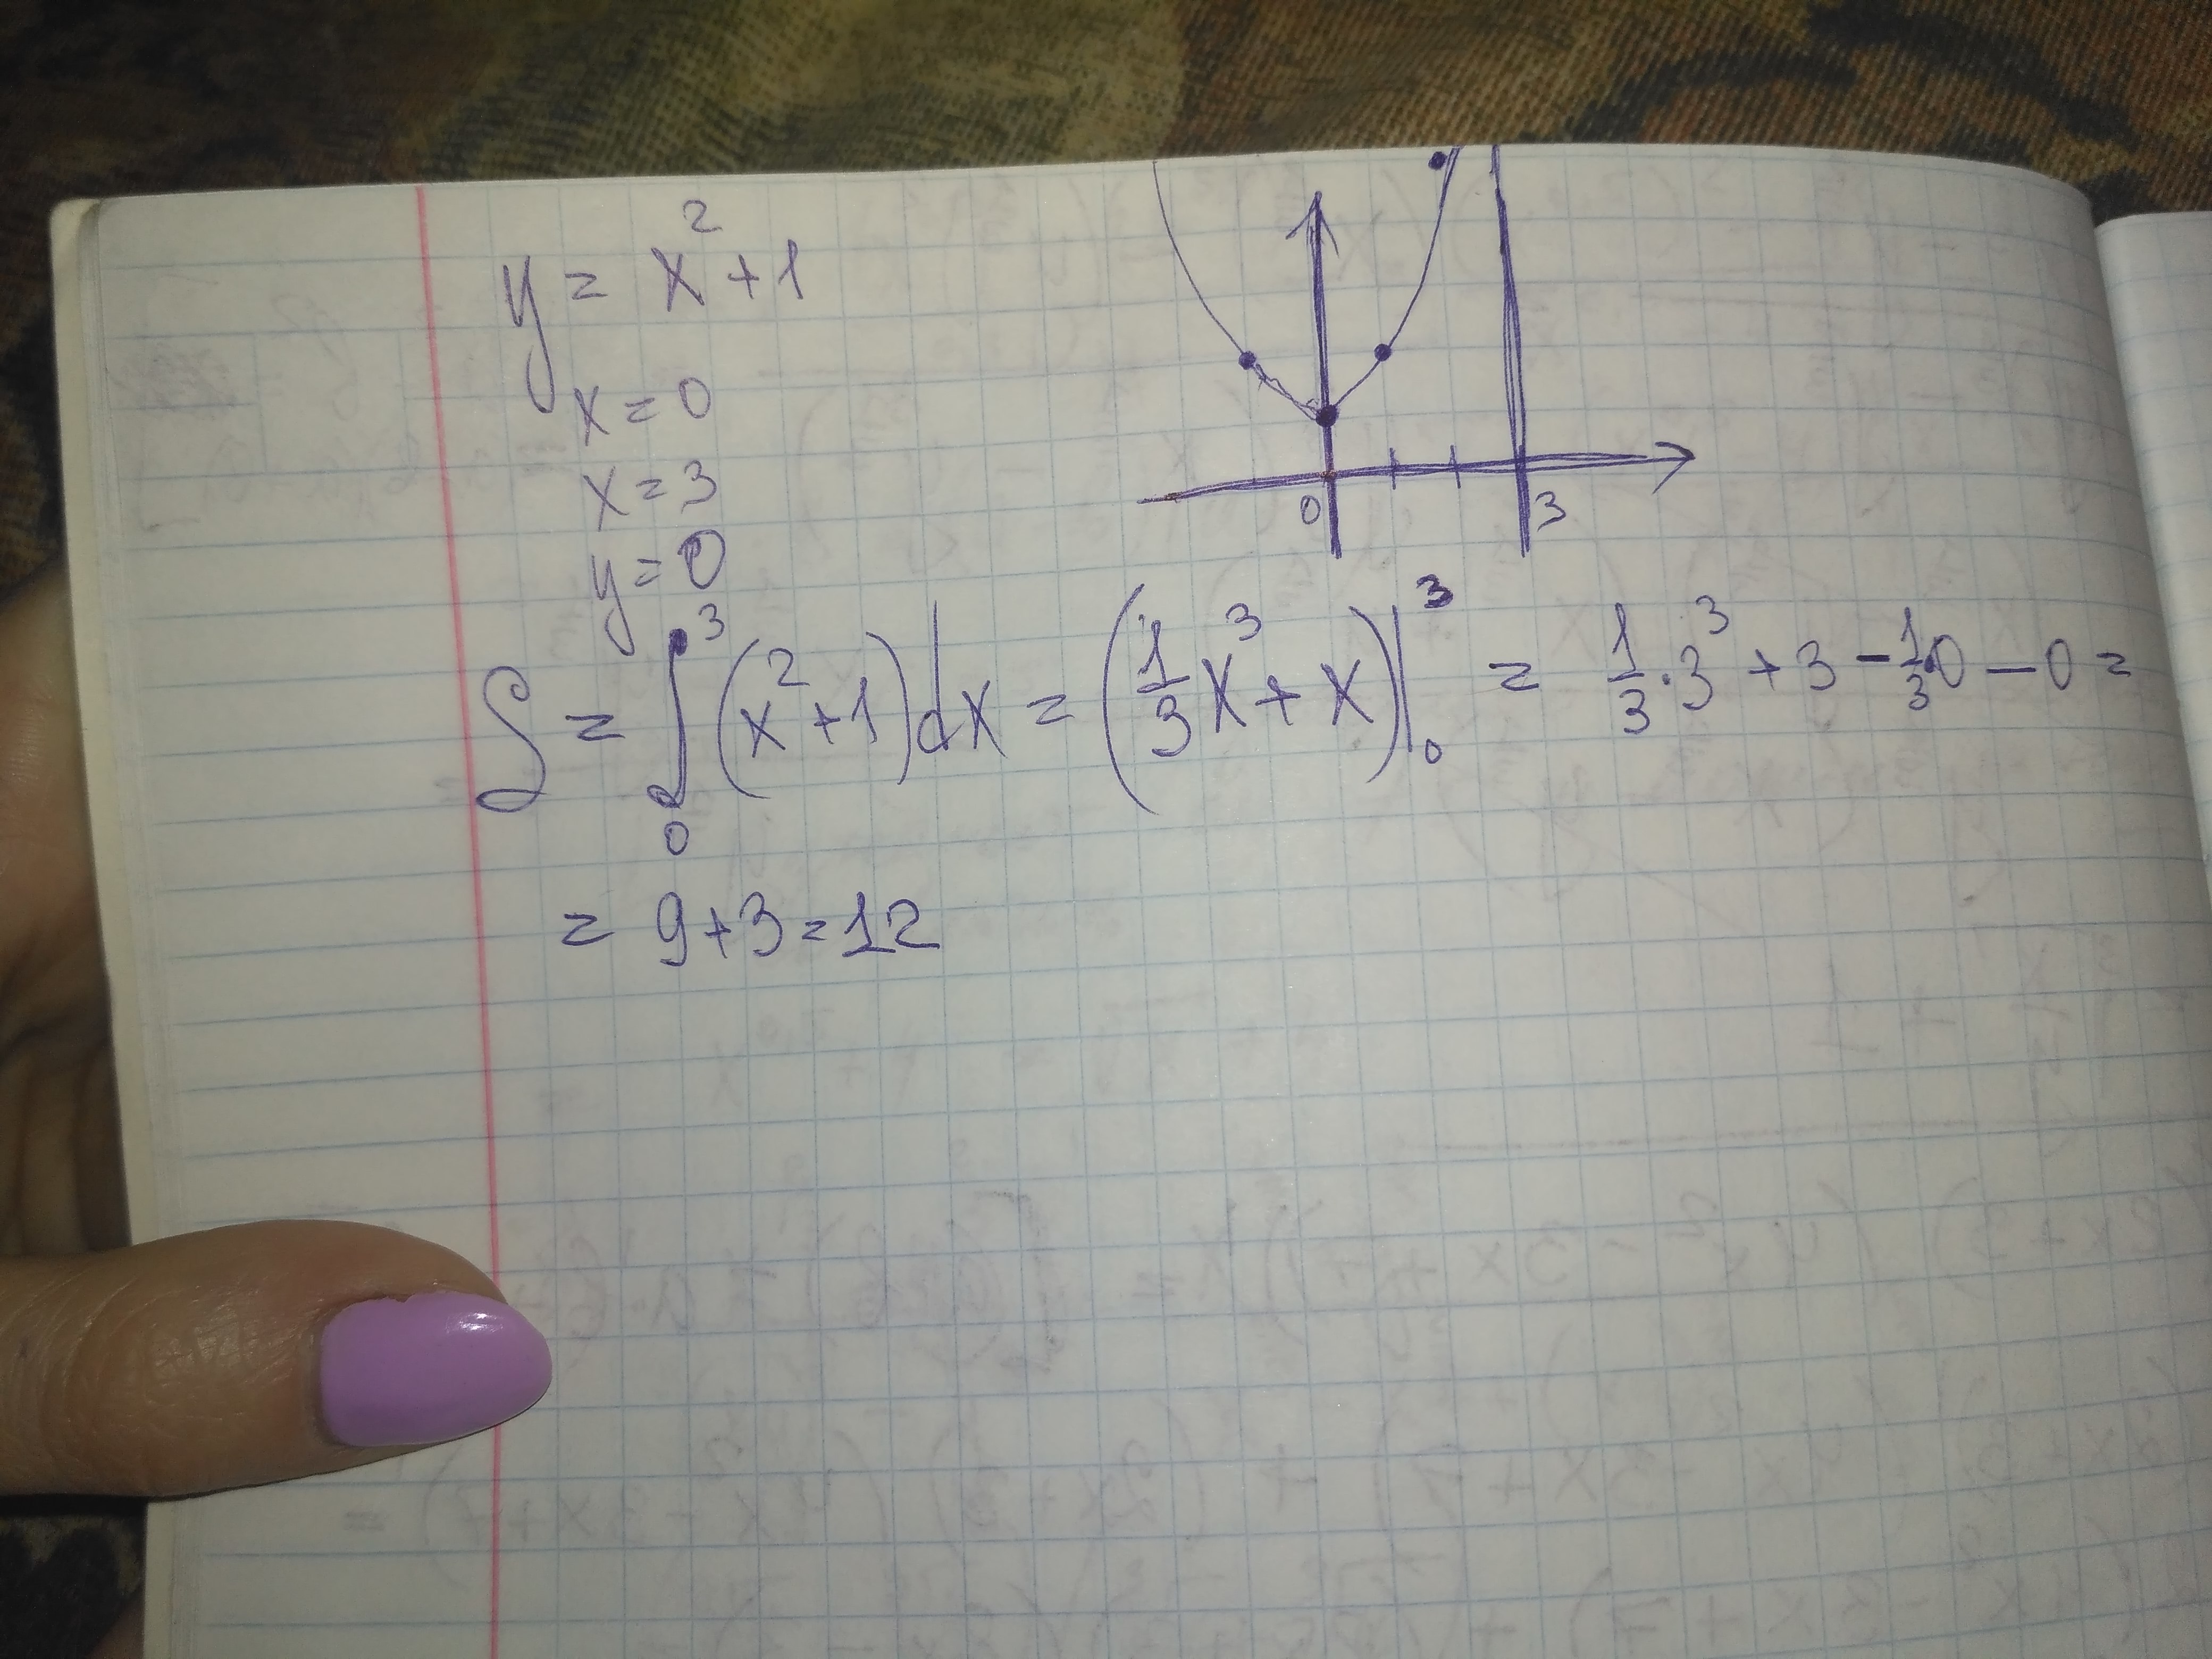 y = x² + 1
x = 0
x = 3
y = 0
0 3
S = ∫₀³ (x² + 1) dx = (1/3 x³ + x) |₀³ = 1/3 · 3³ + 3 - 1/3 · 0 - 0 =
= 9 + 3 = 12